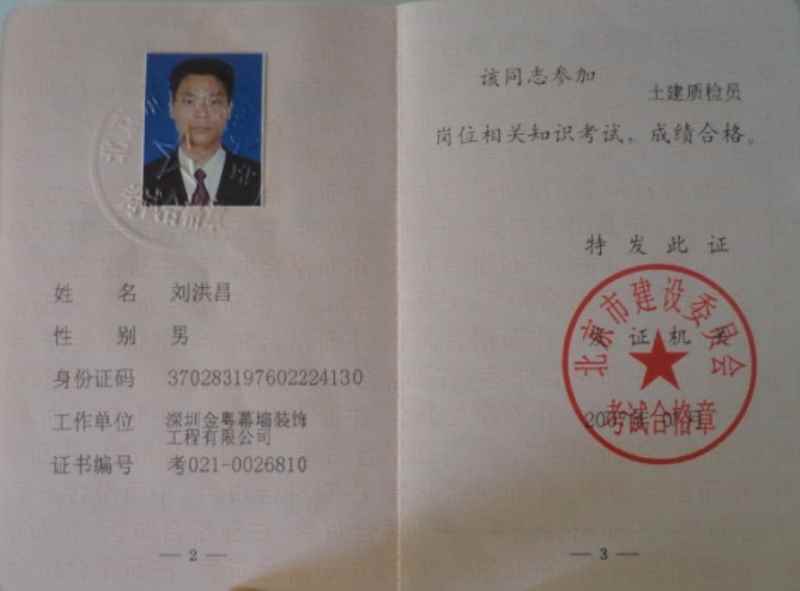 姓 名 刘洪昌
性 别 男
身份证码 370283197602224130
工作单位 深圳金粤幕墙装饰
工程有限公司
证书编号 考021-0026810
— 2 —
该同志参加 土建质检员
岗位相关知识考试，成绩合格。
特发此证
北京市建设委员会
发证机关
考试合格章
— 3 —